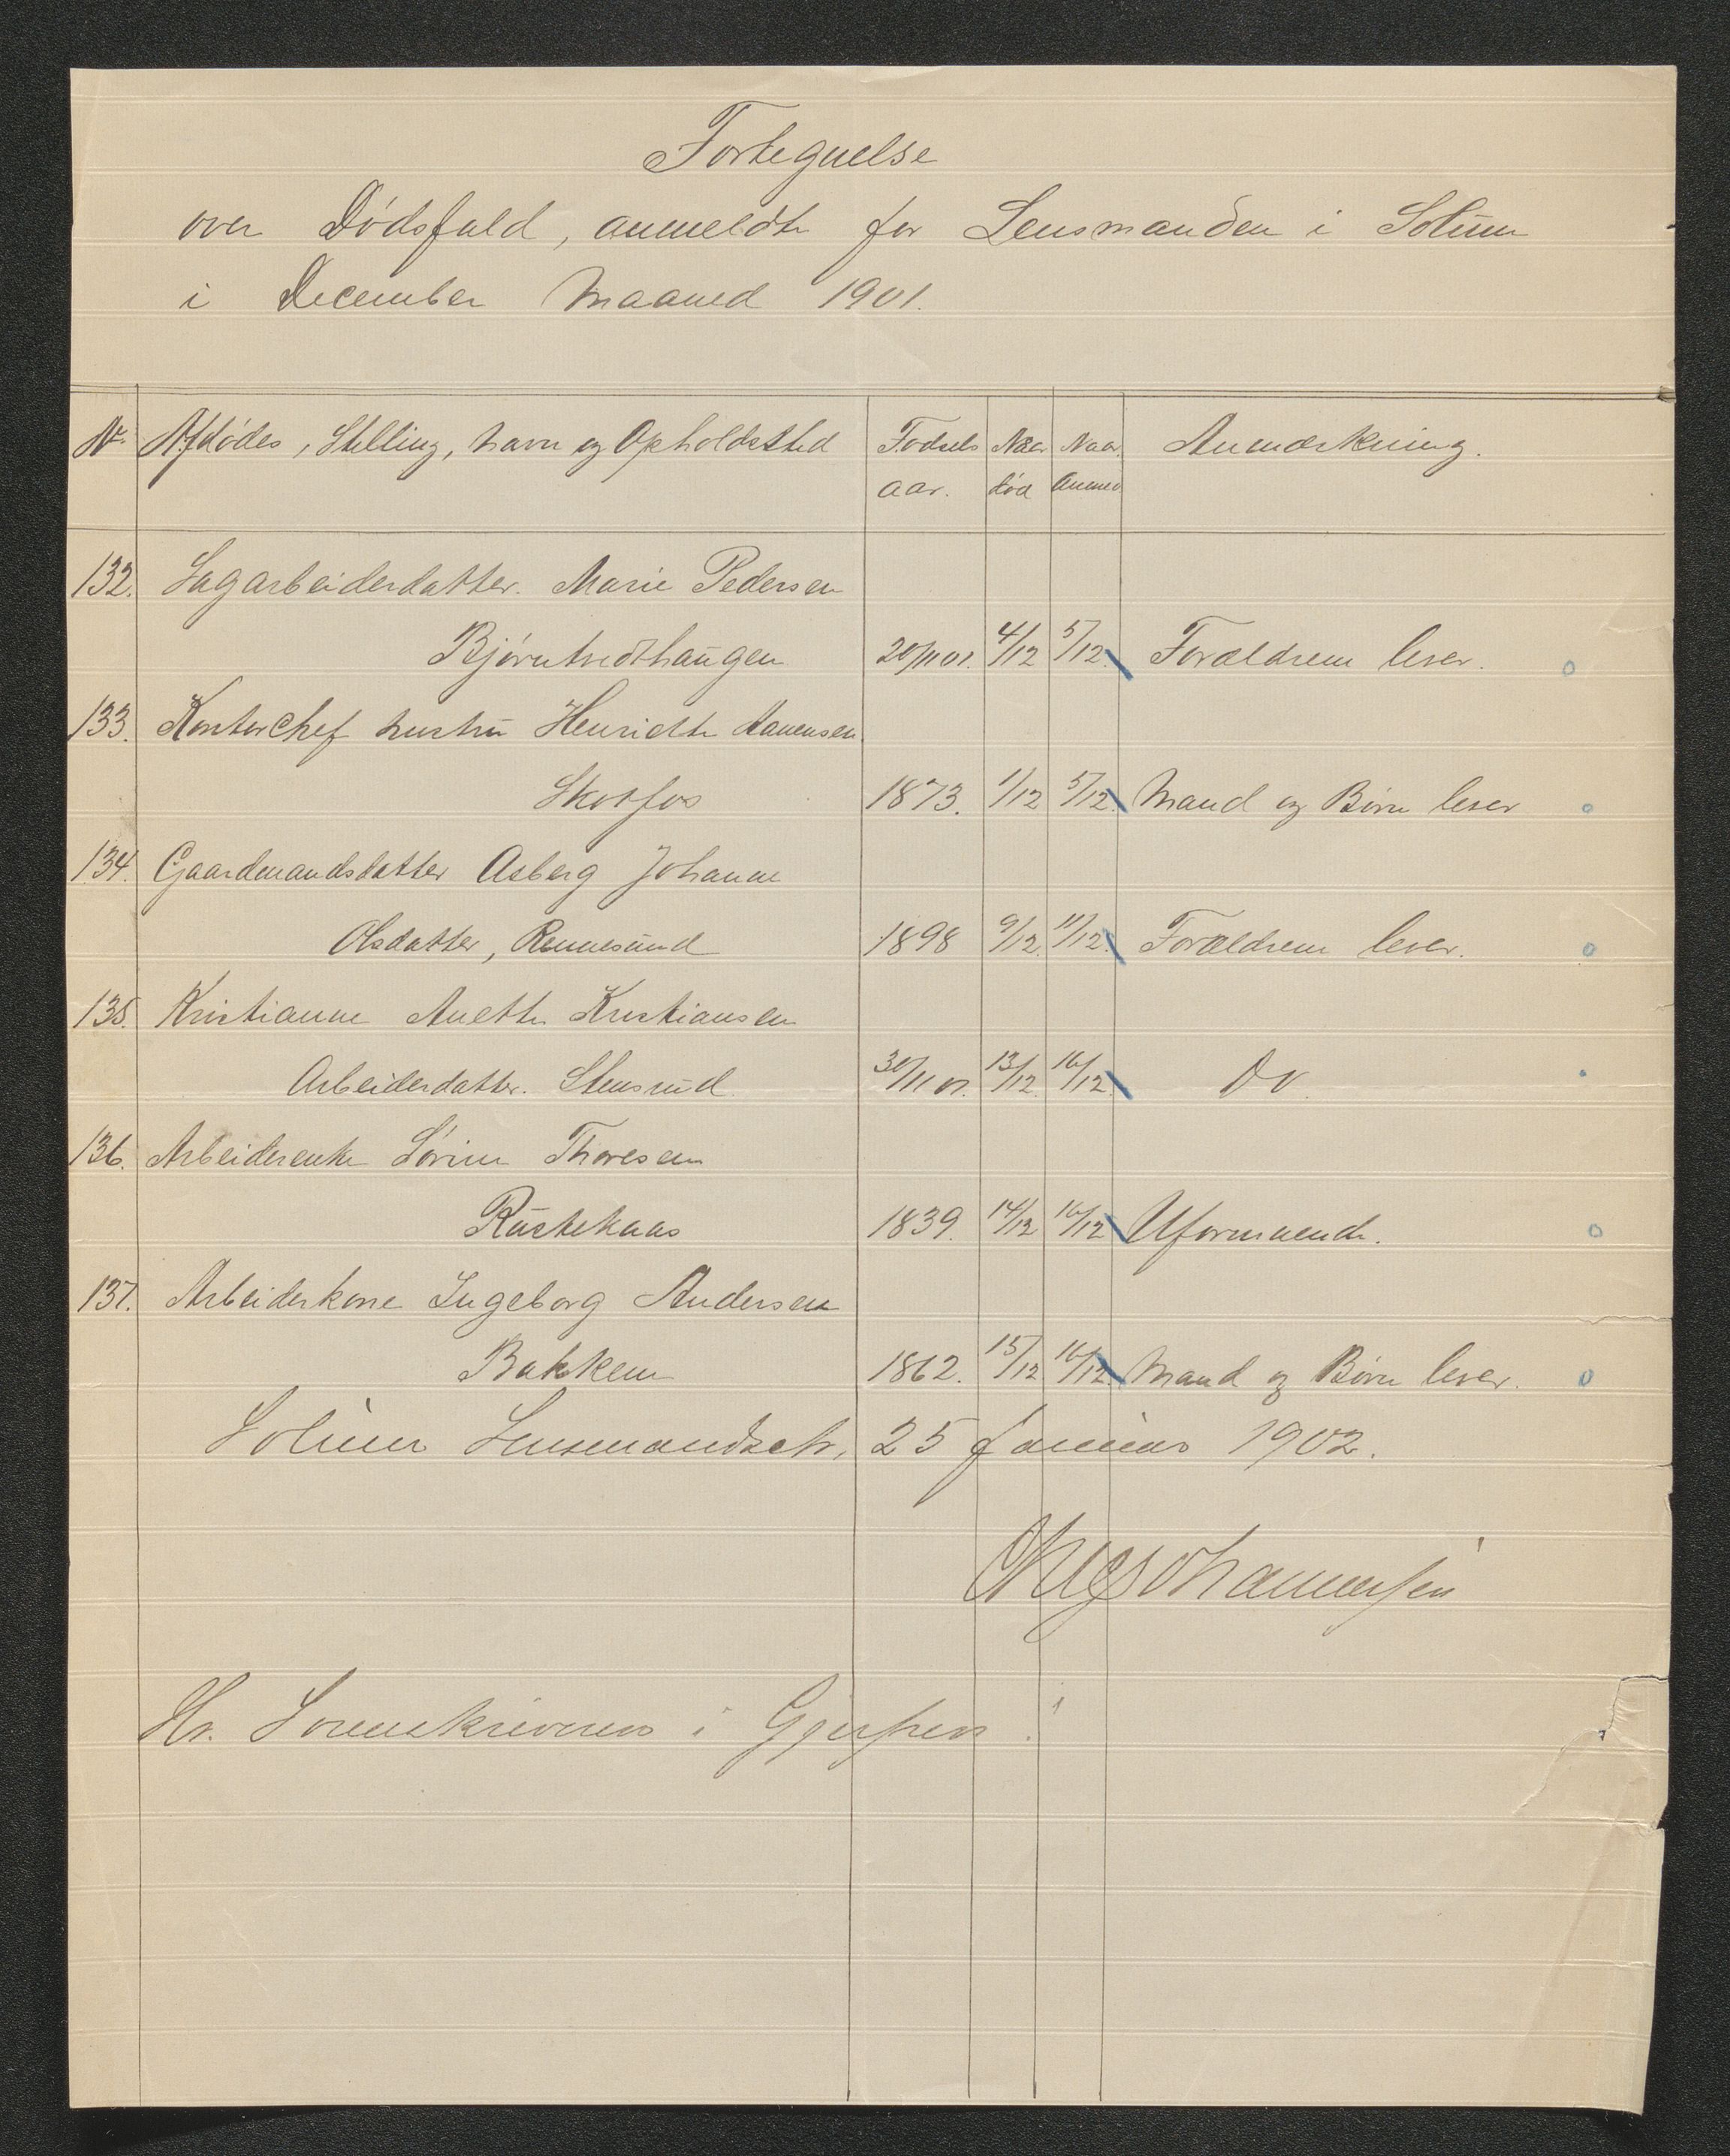 Fortegnelse
over Dødsfald, anmeldte for Lensmanden i Solum
i December Maaned 1901.
Nr. Afdødes, Stilling, Navn og Opholdssted Fødsels Naar Naar Anmærkning.
aar. død Anmed
132. Sagarbeiderdatter. Marie Pedersen
Bjørntvedthaugen 20/11 01. 4/12 5/12. Forældrene lever.
133. Kontorchef hustru Henriette
Skotfos 1873. 1/12 5/12. Mand og Børn lever
134. Gaardmandsdatter Asberg Johanne
Olsdatter, Rennesund 1898 9/12. 11/12. Forældrene lever.
135. Kristianne Anette Kristiansen
Arbeiderdatter. Stensrud 30/11 01. 13/12. 16/12. Do.
136. Arbeiderenke Sørine Thoresen
Rustekaas 1839. 14/12 16/12 Uformuende.
137. Arbeiderkone Ingeborg Andersen
Bakken 1862. 15/12 16/12. Mand og Børn lever.
Solum Lensmandsetr, 25 Januar 1902.
Johannessen
Hr. Sorenskriveren i Gjerpen!